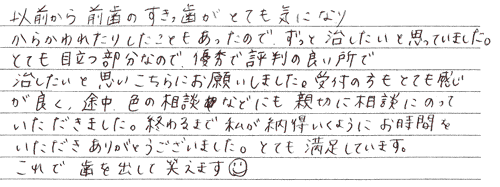 以前から 前歯の すきっ歯が とても 気に なり
からかわれたりしたこともあったので、ずっと 治したいと思っていました。
とても 目立つ部分なので、優秀で 評判の 良い 所で
治したいと 思い こちらに お願いしました。受付の方も とても感じ
が 良く、途中、色の 相談などにも 親切に 相談に のって
いただきました。終わるまで 私が 納得いくように お時間を
いただき ありがとうございました。とても 満足しています。
これで 歯を 出して 笑えます☺